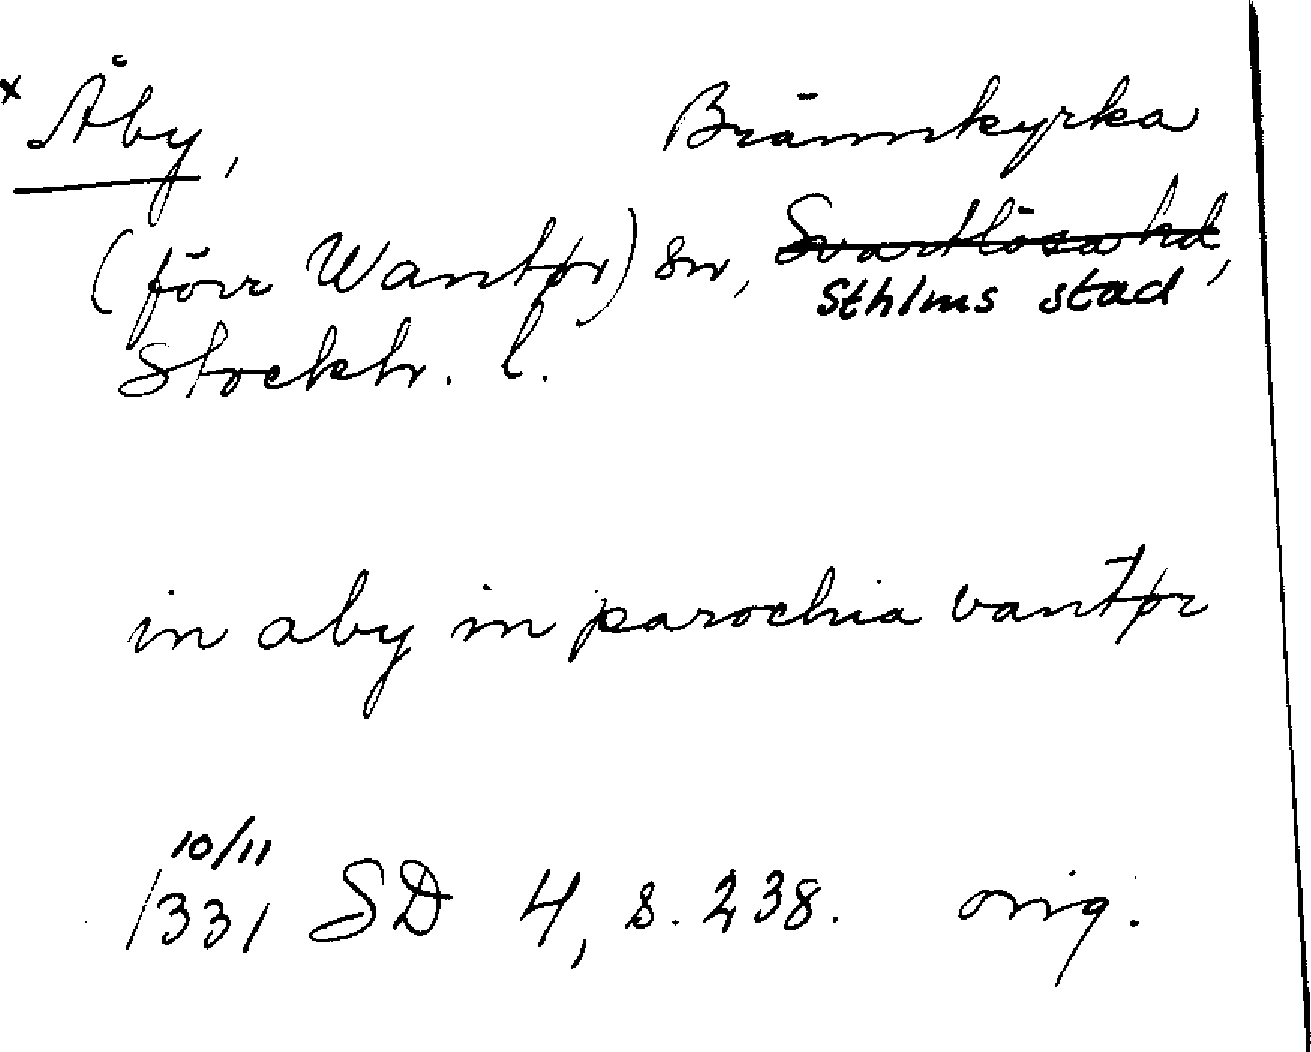 x Åby, Brännkyrka
(förr Wantør) sn, Svartlösa hd,
Sthlms stad
Stockh. l.
in aby in parochia vantør
10/11
1331 SD 4, s. 238. orig.